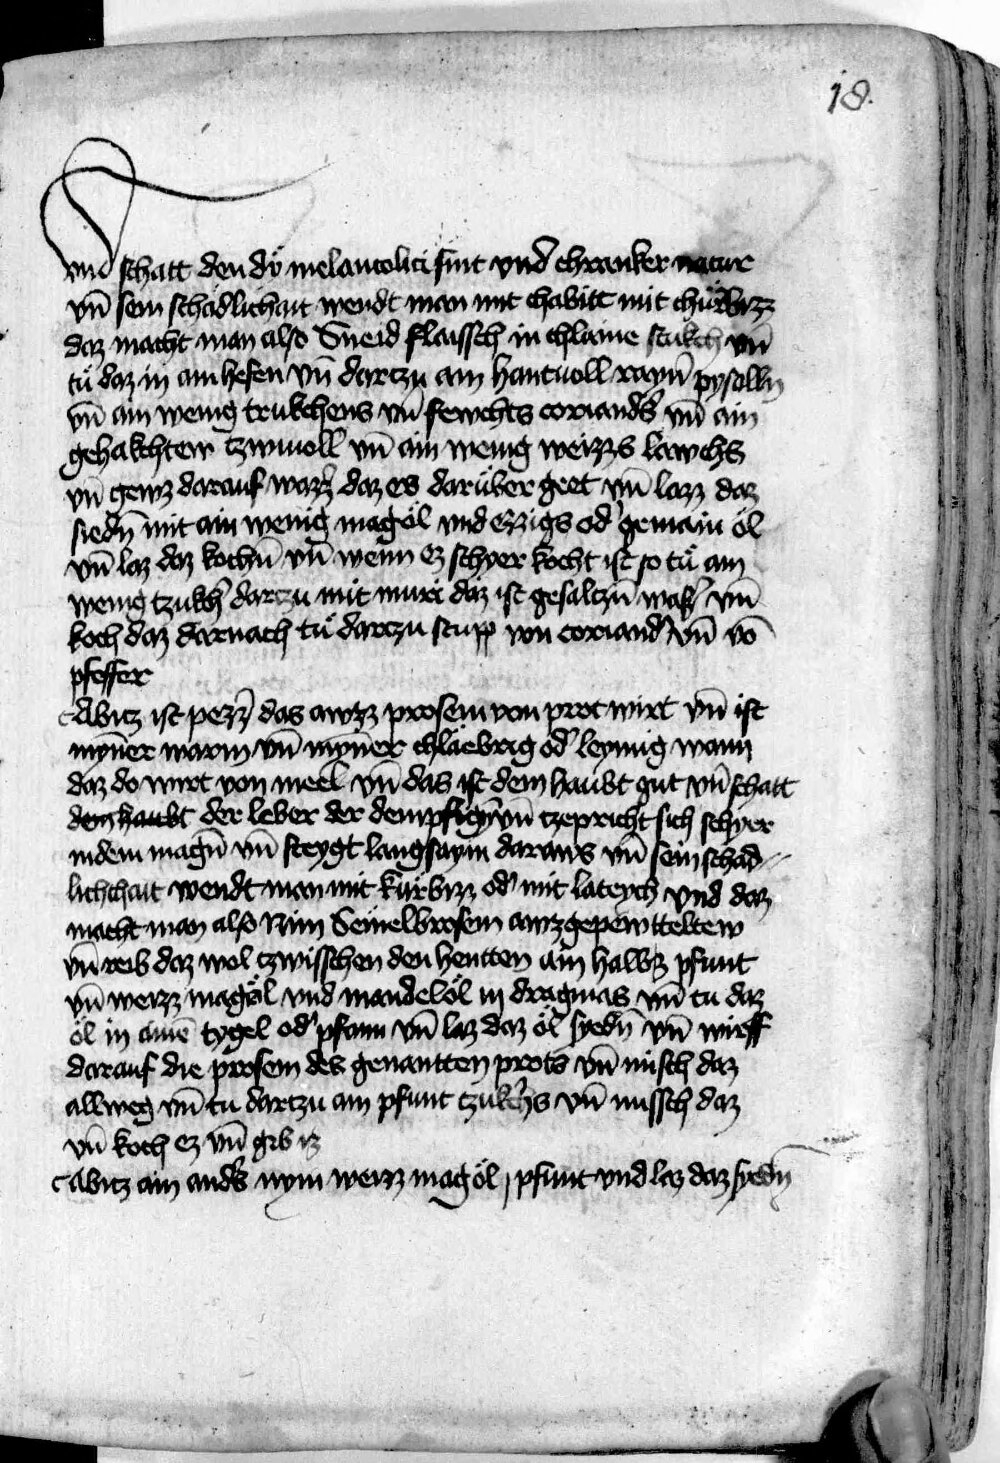 18.
vnd schatt den dÿ melancolici sint vnd chranker natur
vn̄ sein schádlichait wendt man mit chabitt mit chürbizz
daz macht man also Sneid flaissch in chlaine stukch vn̄
tü daz in ain hefen vn̄ dartzu ain hantuoll rayn̄ pysolln
vn̄ ain wenig trukchens vn̄ fewchts coriand's vn̄ ain
gehakchtew tzwiuoll vn̄ ain wenig weizzs lawchs
vn̄ gewz darauf wazz' daz es darüber gret vn̄ lazz daz
siedn̄ mit ain wenig magöl vnd ezzigs od' gemain öl
vn̄ laz daz kochn̄ vn̄ wenn ez schyer kocht ist so tü ain
wenig tzukh' dartzu mit muri daz ist gesaltzn̄ wass' vn̄
koch daz darnach tü dartzu stupp von coriand' vn̄ vō
pfeffer
Abitz ist pezz' das awzz prosem von prot wirt vn̄ ist
myn̄er warm vn̄ myn̄er chlaebrig od' leymig wann
daz do wirt von meel vn̄ das ist dem haubt gut vn̄ schatt
dem haubt der leber der dempfign̄ vn̄ tzepricht sich schyer
in dem magn̄ vn̄ steygt langsaym daraws vn̄ sein schad-
lichchait wendt man mit kürbizz od' mit lateych vnd daz
macht man also Nim Semelbrosem awzgepewtteltew
vn̄ reib daz wol tzwisschen den hentten ain halbs pfunt
vn̄ weizz magöl vnd mandelöl iii dragmas vn̄ tu daz
öl in ainē tygel od' pfann vn̄ laz daz öl syedn̄ vn̄ wirff
darauf die prosem des genantten prots vn̄ misch daz
allweg vn̄ tu dartzu ain pfunt tzukh's vn̄ missch daz
vn̄ koch ez vn̄ gib iz
Abitz ain and's nym weizz magöl j pfunt vnd laz daz syedn̄